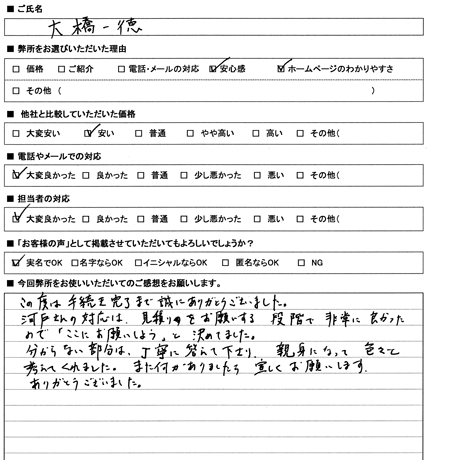 ■ ご氏名
大橋一徳
■ 弊所をお選びいただいた理由
□ 価格 □ご紹介 □電話・メールの対応 ☑安心感 ☑ホームページのわかりやすさ
□ その他 ( )
■ 他社と比較していただいた価格
□ 大変安い ☑ 安い □ 普通 □ やや高い □ 高い □ その他(
■ 電話やメールでの対応
☑ 大変良かった □ 良かった □ 普通 □ 少し悪かった □ 悪い □ その他(
■ 担当者の対応
☑ 大変良かった □ 良かった □ 普通 □ 少し悪かった □ 悪い □ その他(
■「お客様の声」として掲載させていただいてもよろしいでしょうか?
☑ 実名でOK □名字ならOK □イニシャルならOK □ 匿名ならOK □ NG
■ 今回弊所をお使いいただいてのご感想をお願いします。
この度は手続き完了まで誠にありがとうございました。
河戸さんの対応は、見積りをお願いする段階で非常に良かった
ので「ここにお願いしよう」と決めてました。
分からない部分は、丁寧に答えて下さり、親身になって色々と
考えてくれました。また何かありましたら宜しくお願いします。
ありがとうございました。